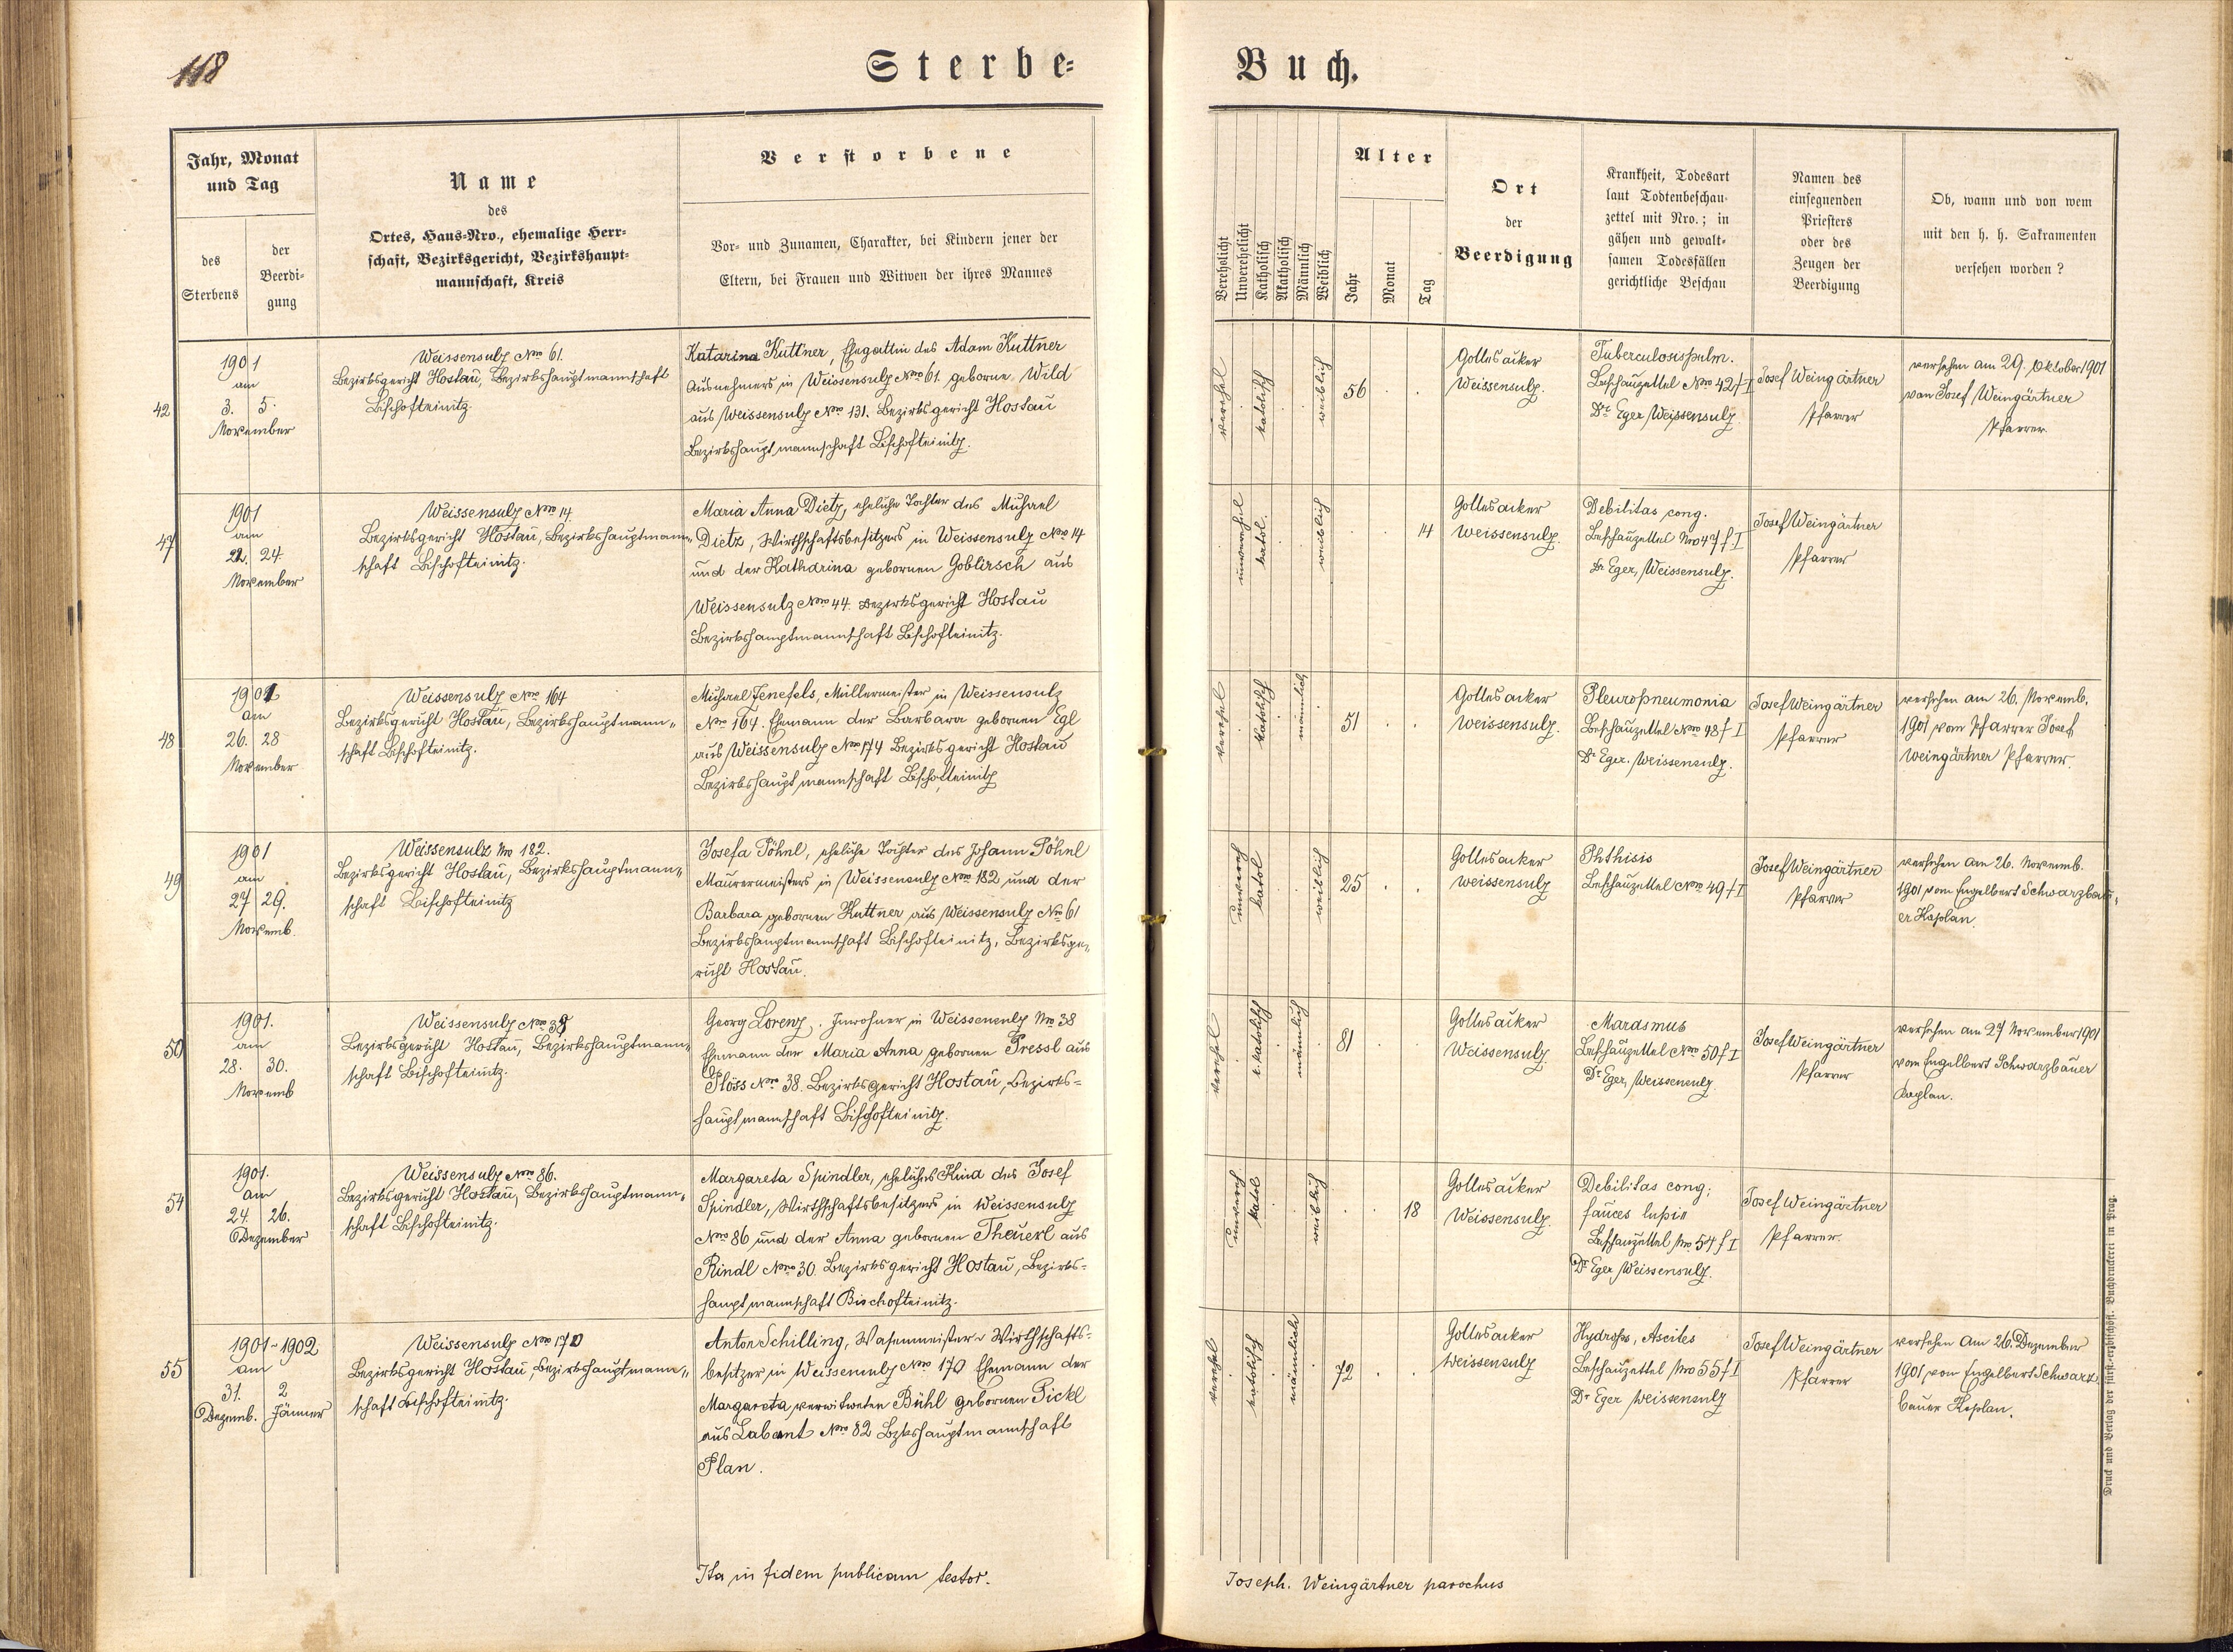 118
Sterbe-
Buch.
Jahr, Monat
und Tag
des
Sterbens
der
Beerdi-
gung
Name
des
Ortes, Haus-Nro., ehemalige Herr-
schaft, Bezirksgericht, Bezirkshaupt-
mannschaft, Kreis
Verstorbene
Vor- und Zunamen, Charakter, bei Kindern jener der
Eltern, bei Frauen und Witwen der ihres Mannes
Verehelicht
Unverehelicht
Katholisch
Akatholisch
Männlich
Weiblich
Alter
Jahr
Monat
Tag
Ort
der
Beerdigung
Krankheit, Todesart
laut Todtenbeschau-
zettel mit Nro.; in
gähen und gewalt-
samen Todesfällen
gerichtliche Beschau
Namen des
einsegnenden
Priesters
oder des
Zeugen der
Beerdigung
Ob, wann und von wem
mit den h. h. Sakramenten
versehen worden?
42
1901
am
3. 5.
November
Weissensulz Nro 61.
Bezirksgericht Hostau, Bezirkshauptmannschaft
Bischofteinitz.
Katarina Kuttner, Ehegattin des Adam Kuttner
Ausnehmers in Weissensulz Nro 61. geborne Wild
aus Weissensulz Nro 131. Bezirksgericht Hostau
Bezirkshauptmannschaft Bischofteinitz.
verehel
katolisch
weiblich
56
Gottesacker
Weissensulz.
Tuberculosis pulm.
Beschauzettel Nro 42 f I
Dr Eger Weissensulz
Josef Weingärtner
Pfarrer
versehen am 29. Oktober 1901
von Josef Weingärtner
Pfarrer.
47
1901
am
22. 24
November
Weissensulz Nro 14.
Bezirksgericht Hostau, Bezirkshauptmann„
schaft Bischofteinitz.
Maria Anna Dietz, eheliche Tochter des Michael
Dietz, Wirthschaftsbesitzers in Weissensulz Nro 14
und der Katharina gebornen Goblirsch aus
Weissensulz Nro 44. Bezirksgericht Hostau
Bezirkshauptmannschaft Bischofteinitz.
unverehel
katol.
weiblich
14
Gottesacker
Weissensulz.
Debilitas cong.
Beschauzettel Nro 47 f I
Dr Eger, Weissensulz.
Josef Weingärtner
Pfarrer
48
1901
am
26. 28
November
Weissensulz Nro 164
Bezirksgericht Hostau, Bezirkshauptmann„
schaft Bischofteinitz.
Michael Jenefels, Müllermeister in Weissensulz
Nro 164. Ehemann der Barbara gebornen Egl
aus Weissensulz Nro 174 Bezirksgericht Hostau
Bezirkshauptmannschaft Bischofteinitz
verehel
katolisch
männlich
51
Gottesacker
Weissensulz.
Pleuropneumonia
Beschauzettel Nro 48 f I
Dr Eger. Weissensulz.
Josef Weingärtner
Pfarrer
versehen am 26. Novemb.
1901 vom Pfarrer Josef
Weingärtner Pfarrer.
49
1901
am
27 29.
Novemb.
Weissensulz Nro 182.
Bezirksgericht Hostau, Bezirkshauptmann„
schaft Bischofteinitz
Josefa Pöhnl, eheliche Tochter des Johann Pöhnl
Maurermeisters in Weissensulz Nro 182 und der
Barbara gebornen Kuttner aus Weissensulz No 61
Bezirkshauptmannschaft Bischofteinitz, Bezirksge„
richt Hostau.
unvereh
katol
weiblich
25
Gottesacker
Weissensulz
Phthisis
Beschauzettel Nro 49 f I
Josef Weingärtner
Pfarrer
versehen am 26. Novemb.
1901 vom Engelbert Schwarzbau„
er Kaplan.
50
1901.
am
28. 30.
Novemb
Weissensulz Nro 38
Bezirksgericht Hostau, Bezirkshauptmann„
schaft Bischofteinitz.
Georg Lorenz. Inwohner in Weissensulz Nro 38
Ehemann der Maria Anna gebornen Pressl aus
Plöss Nro 38. Bezirksgericht Hostau, Bezirks-
hauptmannschaft Bischofteinitz.
verehel
r. katolisch
männlich
81
Gottesacker
Weissensulz
Marasmus
Beschauzettel Nro 50 f I
Dr Eger, Weissensulz.
Josef Weingärtner
Pfarrer
versehen am 27 November 1901
vom Engelbert Schwarzbauer
Kaplan.
54
1901.
am
24. 26.
Dezember
Weissensulz Nro 86.
Bezirksgericht Hostau, Bezirkshauptmann„
schaft Bischofteinitz.
Margareta Spindler, eheliches Kind des Josef
Spindler, Wirthschaftsbesitzers in Weissensulz
Nro 86 und der Anna gebornen Theuerl aus
Rindl Nro 30. Bezirksgericht Hostau, Bezirks-
hauptmannschaft Bischofteinitz.
unvereh
katol
weiblich
18
Gottesacker
Weissensulz.
Debilitas cong;
fauces lupin
Beschauzettel Nro 54 f I
Dr Eger Weissensulz.
Josef Weingärtner
Pfarrer.
55
1901-1902
am
31. 2
Dezemb. Jänner
Weissensulz Nro 170
Bezirksgericht Hostau, Bezirkshauptmann„
schaft Bischofteinitz.
Anton Schilling, Wasenmeister u Wirthschafts-
besitzer in Weissensulz Nro 170 Ehemann der
Margareta verwitweten Bühl gebornen Pickl
aus Labant Nro 82 Bzkshauptmannschaft
Plan.
verehel
katolisch
männlich
72
Gottesacker
Weissensulz
Hydrops, Ascites
Beschauzettel Nro 55 f I
Dr Eger Weissensulz
Josef Weingärtner
Pfarrer
versehen Am 26. Dezember
1901 von Engelbert Schwarz
bauer Kaplan.
Ita in fidem publicam testor.
Joseph. Weingärtner parochus
Druck und Verlag der fürst-erzbischöfl. Buchdruckerei in Prag.